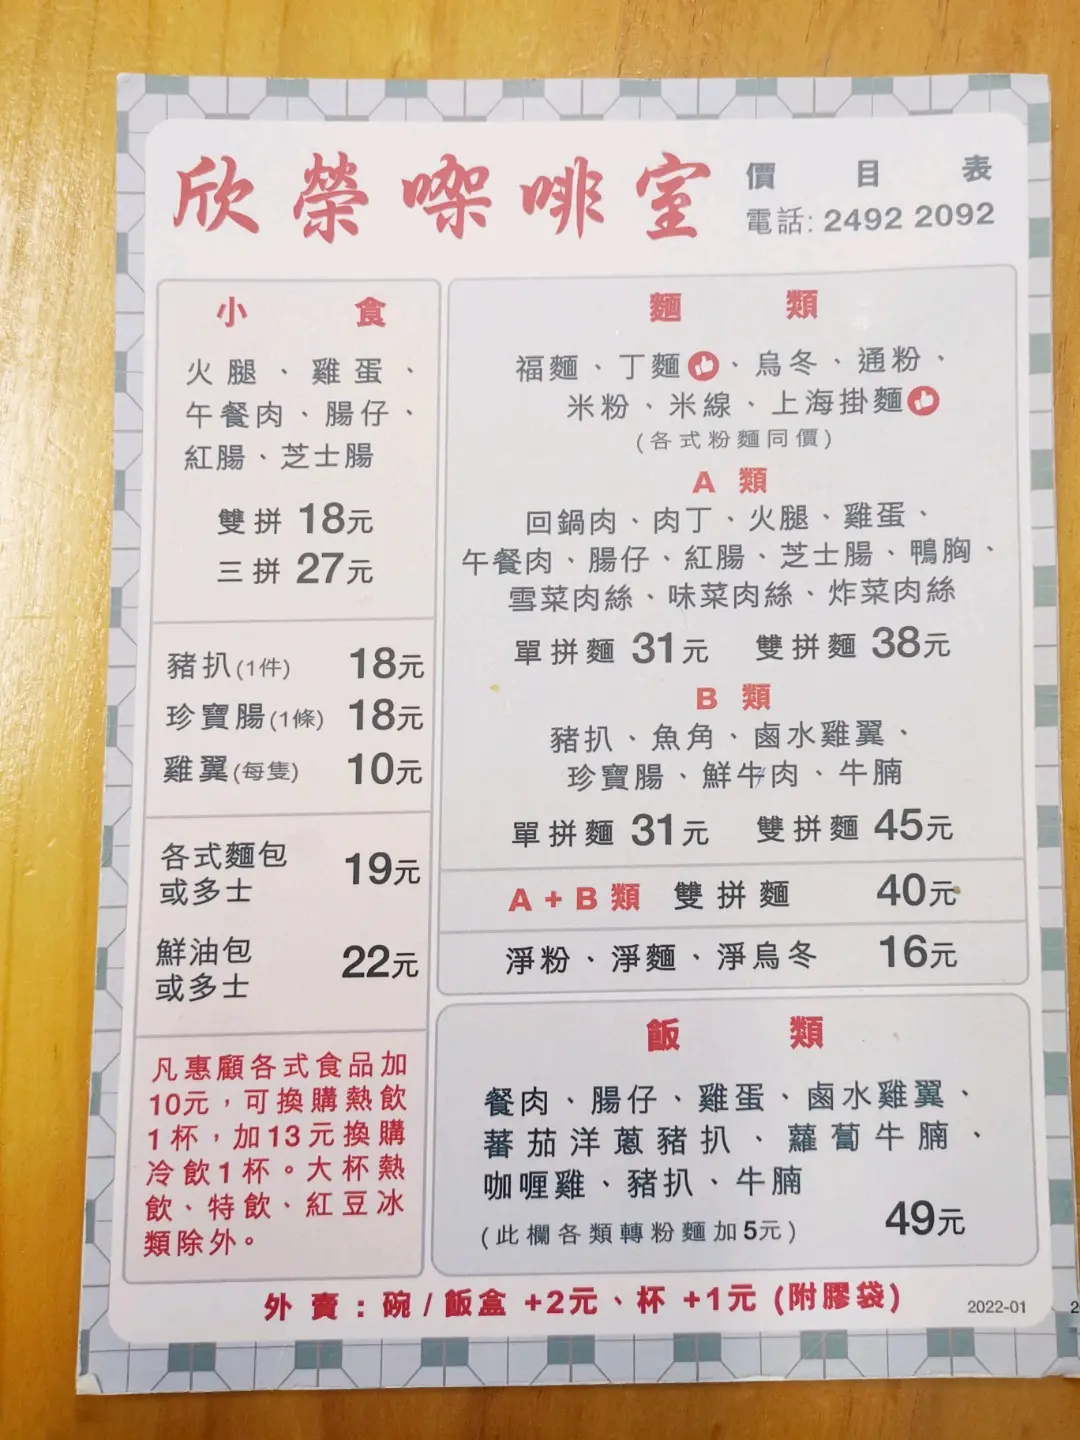 欣榮㗎啡室
價目表
電話: 2492 2092
小食
火腿、雞蛋、
午餐肉、腸仔、
紅腸、芝士腸
雙拼 18元
三拼 27元
豬扒(1件) 18元
珍寶腸(1條) 18元
雞翼(每隻) 10元
各式麵包
或多士 19元
鮮油包
或多士 22元
凡惠顧各式食品加
10元，可換購熱飲
1杯，加13元換購
冷飲1杯。大杯熱
飲、特飲、紅豆冰
類除外。
麵類
福麵、丁麵、烏冬、通粉、
米粉、米線、上海掛麵
(各式粉麵同價)
A類
回鍋肉、肉丁、火腿、雞蛋、
午餐肉、腸仔、紅腸、芝士腸、鴨胸、
雪菜肉絲、味菜肉絲、炸菜肉絲
單拼麵 31元 雙拼麵 38元
B類
豬扒、魚角、鹵水雞翼、
珍寶腸、鮮牛肉、牛腩
單拼麵 31元 雙拼麵 45元
A+B類 雙拼麵 40元
淨粉、淨麵、淨烏冬 16元
飯類
餐肉、腸仔、雞蛋、鹵水雞翼、
蕃茄洋蔥豬扒、蘿蔔牛腩、
咖喱雞、豬扒、牛腩
49元
(此欄各類轉粉麵加5元)
外賣：碗/飯盒 +2元、杯 +1元 (附膠袋)
2022-01
2